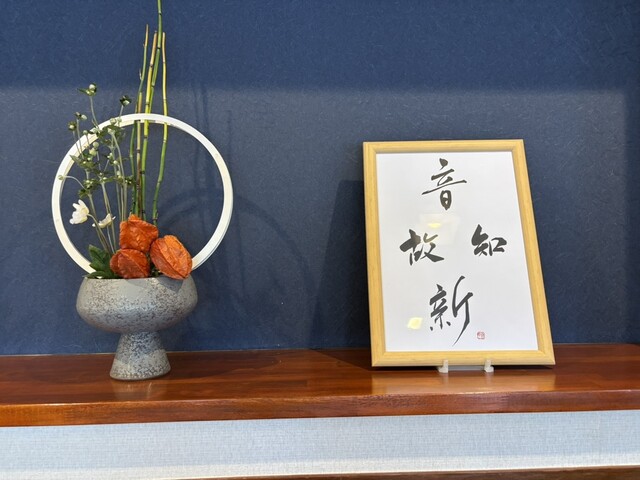 音
故 知
新